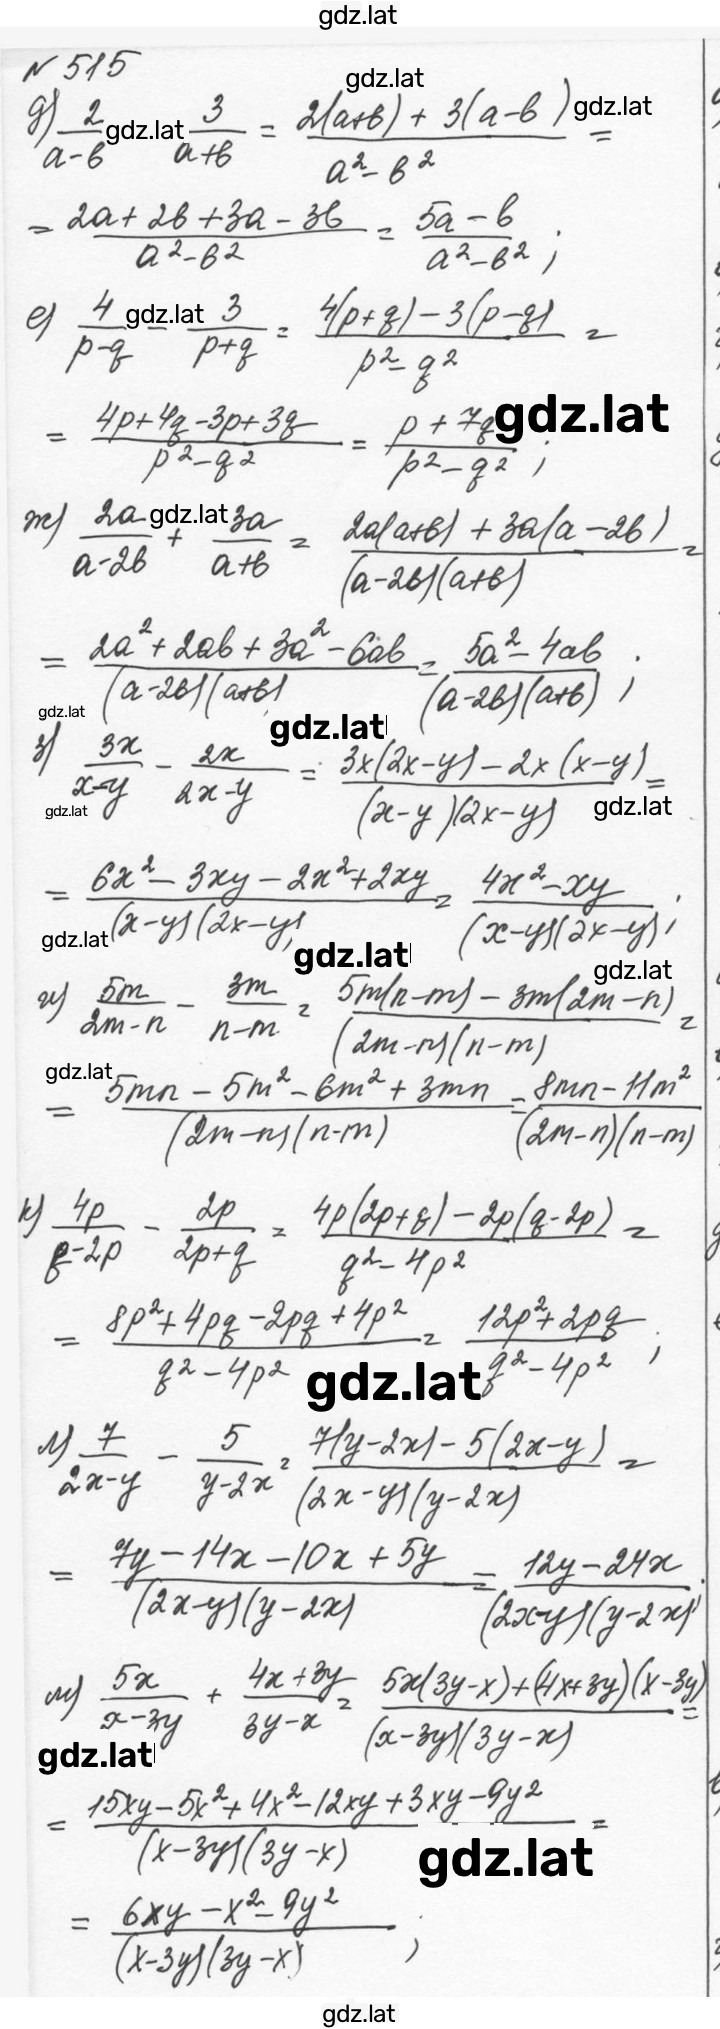 gdz.lat
N 515
gdz.lat
д) 2/(a-b) gdz.lat 3/(a+b) = (2(a+b) + 3(a-b))/(a²-b²) = gdz.lat
= (2a+2b+3a-3b)/(a²-b²) = (5a-b)/(a²-b²);
е) 4/(p-q) gdz.lat - 3/(p+q) = (4(p+q)-3(p-q))/(p²-q²) =
= (4p+4q-3p+3q)/(p²-q²) = (p+7q)/(p²-q²); gdz.lat
ж) 2a/(a-2b) + gdz.lat 3a/(a+b) = (2a(a+b)+3a(a-2b))/((a-2b)(a+b)) =
= (2a²+2ab+3a²-6ab)/((a-2b)(a+b)) = (5a²-4ab)/((a-2b)(a+b));
gdz.lat gdz.lat
з) 3x/(x-y) - 2x/(2x-y) = (3x(2x-y)-2x(x-y))/((x-y)(2x-y)) =
gdz.lat gdz.lat
= (6x²-3xy-2x²+2xy)/((x-y)(2x-y)) = (4x²-xy)/((x-y)(2x-y));
gdz.lat gdz.lat gdz.lat
и) 5m/(2m-n) - 3m/(n-m) = (5m(n-m)-3m(2m-n))/((2m-n)(n-m)) =
gdz.lat
= (5mn-5m²-6m²+3mn)/((2m-n)(n-m)) = (8mn-11m²)/((2m-n)(n-m))
к) 4p/(q-2p) - 2p/(2p+q) = (4p(2p+q)-2p(q-2p))/(q²-4p²) =
= (8p²+4pq-2pq+4p²)/(q²-4p²) = (12p²+2pq)/(q²-4p²);
gdz.lat
л) 7/(2x-y) - 5/(y-2x) = (7(y-2x)-5(2x-y))/((2x-y)(y-2x)) =
= (7y-14x-10x+5y)/((2x-y)(y-2x)) = (12y-24x)/((2x-y)(y-2x));
м) 5x/(x-3y) + (4x+3y)/(3y-x) = (5x(3y-x)+(4x+3y)(x-3y))/((x-3y)(3y-x)) =
gdz.lat
= (15xy-5x²+4x²-12xy+3xy-9y²)/((x-3y)(3y-x)) =
gdz.lat
= (6xy-x²-9y²)/((x-3y)(3y-x));
gdz.lat